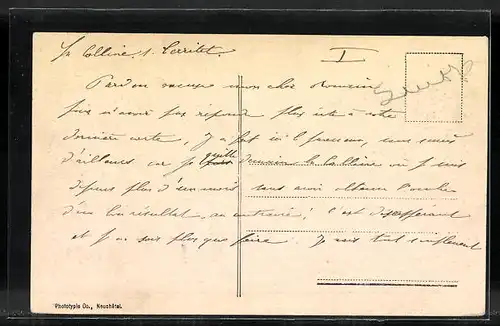 La Colline s. Territet.
I
Pardon encore mon cher Monsieur
de n'avoir pas répondu plus vite à votre
dernière carte, j'y
d'ailleurs car je quitte demain la Colline où je suis
depuis plus d'un mois sans avoir obtenu l'ombre
d'un bon résultat, au contraire! C'est désespérant
et je ne sais plus que faire. Je suis tout simplement
Phototypie Co., Neuchâtel.